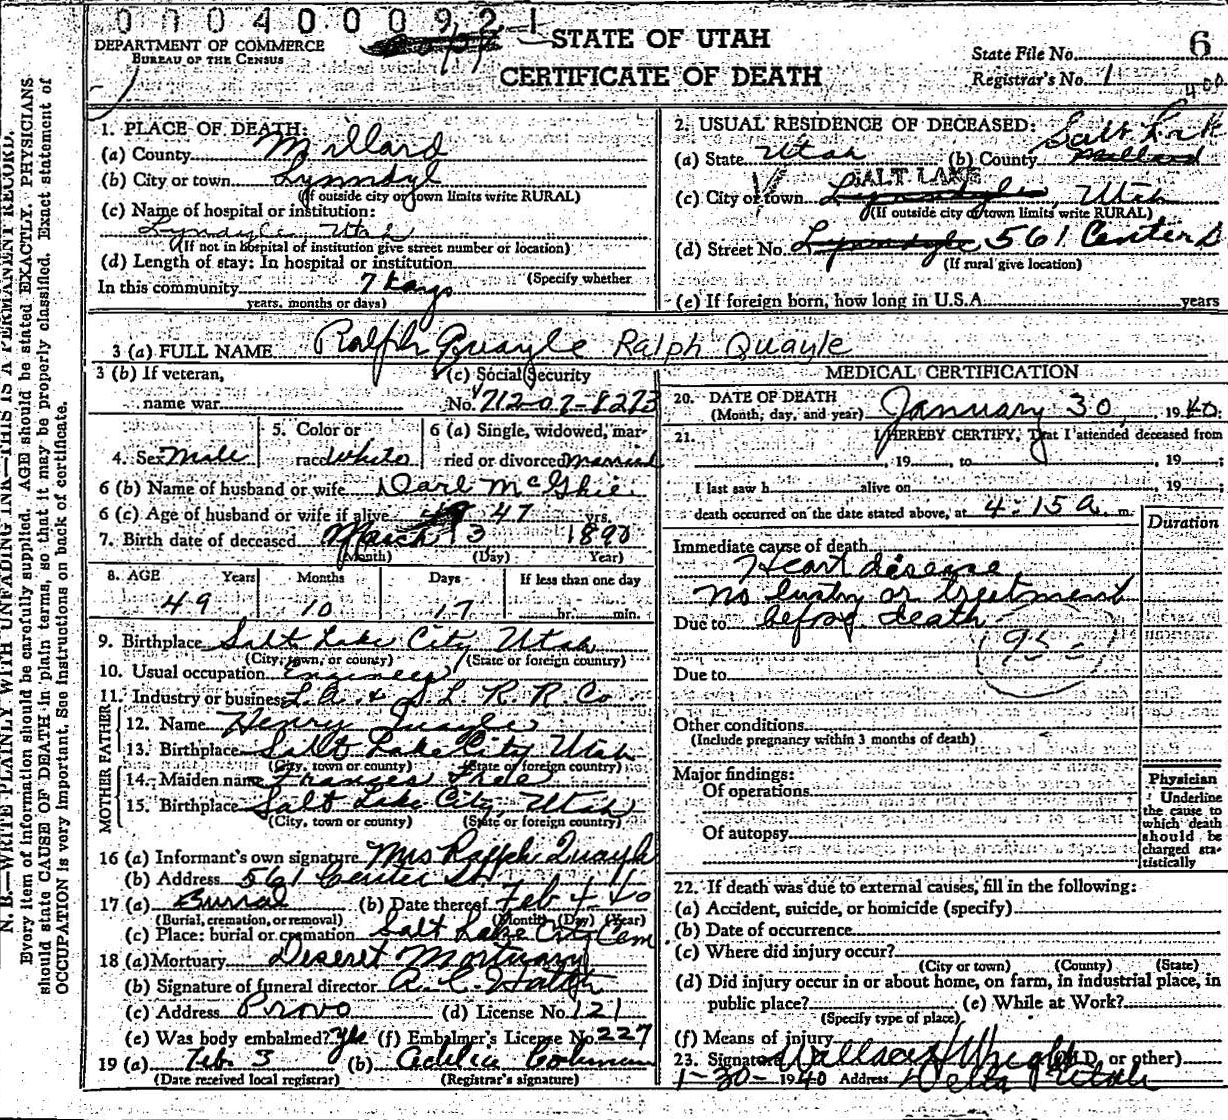 0 0 0 4 0 0 0 9 2 1
DEPARTMENT OF COMMERCE
BUREAU OF THE CENSUS
STATE OF UTAH
CERTIFICATE OF DEATH
State File No. 6
Registrar's No. 1
400
N. B.—WRITE PLAINLY WITH UNFADING INK—THIS IS A PERMANENT RECORD.
Every item of information should be carefully supplied. AGE should be stated EXACTLY. PHYSICIANS
should state CAUSE OF DEATH in plain terms, so that it may be properly classified. Exact statement of
OCCUPATION is very important. See instructions on back of certificate.
1. PLACE OF DEATH:
(a) County Millard
(b) City or town Lynndyl
(If outside city or town limits write RURAL)
(c) Name of hospital or institution:
Lynndyle, Utah
(If not in hospital of institution give street number or location)
(d) Length of stay: In hospital or institution
(Specify whether
In this community 7 days
years, months or days)
2. USUAL RESIDENCE OF DECEASED:
(a) State Utah (b) County Millard Salt Lake
SALT LAKE
(c) City or town Lynndyle, Utah
(If outside city or town limits write RURAL)
(d) Street No. Lynndyle 561 Center
(If rural give location)
(e) If foreign born, how long in U.S.A. years
3 (a) FULL NAME Ralph Quayle Ralph Quayle
3 (b) If veteran,
name war
(c) Social Security
No. 712-07-8273
4. Sex Male
5. Color or
race White
6 (a) Single, widowed, mar-
ried or divorced Married
6 (b) Name of husband or wife Darl McGhie
6 (c) Age of husband or wife if alive 47 yrs.
7. Birth date of deceased March 13 1890
(Month) (Day) Year)
8. AGE Years Months Days If less than one day
49 10 17 hr. min.
9. Birthplace Salt Lake City Utah
(City, town, or county) (State or foreign country)
10. Usual occupation Engineer
11. Industry or business L.A. & S.L. R.R. Co
FATHER
12. Name Henry Quayle
13. Birthplace Salt Lake City Utah
(City, town or county) (State or foreign country)
MOTHER
14. Maiden name Frances
15. Birthplace Salt Lake City, Utah
(City, town or county) (State or foreign country)
16 (a) Informant's own signature Mrs Ralph Quayle
(b) Address 561 Center St.
17 (a) Burial (b) Date thereof Feb 4 40
(Burial, cremation, or removal) (Month) (Day) (Year)
(c) Place: burial or cremation Salt Lake City Cem
18 (a) Mortuary Deseret Mortuary
(b) Signature of funeral director
(c) Address Provo (d) License No. 121
(e) Was body embalmed? Yes (f) Embalmer's License No. 227
19 (a) Feb. 3 (b)
(Date received local registrar) (Registrar's signature)
MEDICAL CERTIFICATION
20. DATE OF DEATH
(Month, day, and year) January 30, 1940.
21. I HEREBY CERTIFY, That I attended deceased from
, 19 , to , 19 ;
I last saw h alive on , 19 ;
death occurred on the date stated above, at 4:15 a. m.
Duration
Immediate cause of death
Heart disease
no or treatment
Due to before death
95
Due to
Other conditions
(Include pregnancy within 3 months of death)
Major findings:
Of operations
Of autopsy
Physician
Underline
the cause to
which death
should be
charged sta-
tistically
22. If death was due to external causes, fill in the following:
(a) Accident, suicide, or homicide (specify)
(b) Date of occurrence
(c) Where did injury occur?
(City or town) (County) (State)
(d) Did injury occur in or about home, on farm, in industrial place, in
public place? (e) While at Work?
(Specify type of place)
(f) Means of injury
23. Signature Wallace Wright (M.D. or other)
1-30- 1940 Address Delta Utah